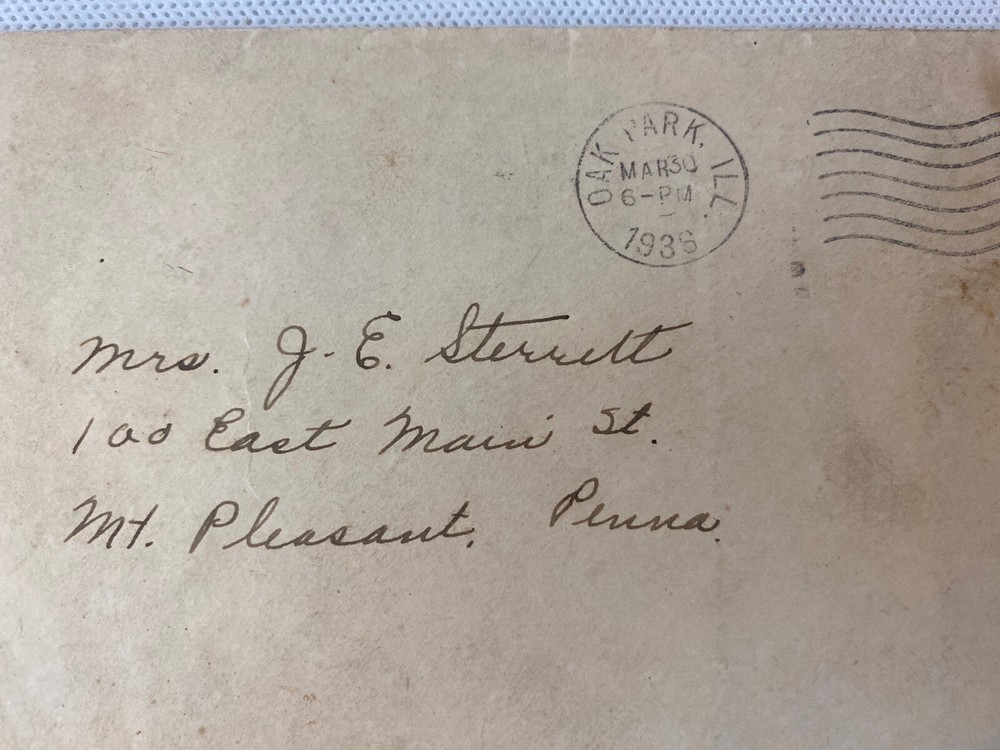 OAK PARK, ILL.
MAR 30
6-PM
1936
Mrs. J. E. Sterrett
100 East Main St.
Mt. Pleasant, Penna.